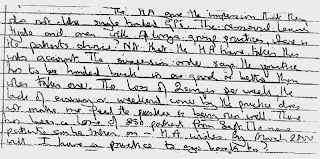 The HA give the impression that they
do not like single handed GPs. The removal
Hyde and even with a large group practices there is
no patients choice. Not that the HA have taken this
into account. The suspension order says the practice
has to be handed back in as good or better than
when taken over. The loss of per week the
lack of evening or weekend cover by the practice does
not make me feel the practice is being run well. There
has been a loss of 350 patients from Sept the name
patients can be taken on - H.A. by March 2000
will I have a practice to go back to?